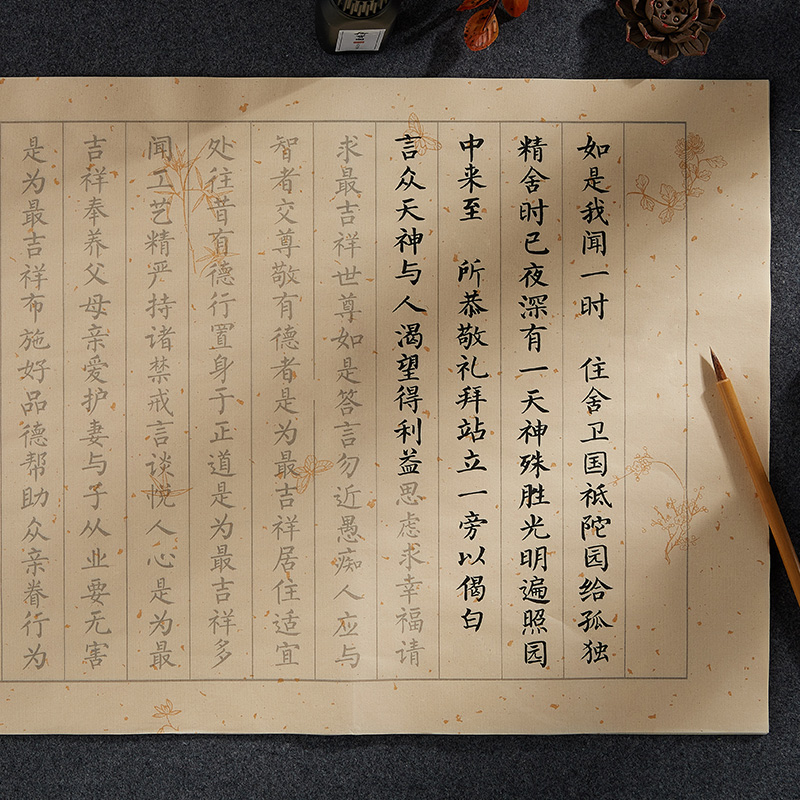 如是我闻一时 住舍卫国祇陀园给孤独
精舍时已夜深有一天神殊胜光明遍照园
中来至 所恭敬礼拜站立一旁以偈白
言众天神与人渴望得利益思虑求幸福请
求最吉祥世尊如是答言勿近愚痴人应与
智者交尊敬有德者是为最吉祥居住适宜
处往昔有德行置身于正道是为最吉祥多
闻工艺精严持诸禁戒言谈悦人心是为最
吉祥奉养父母亲爱护妻与子从业要无害
是为最吉祥布施好品德帮助众亲眷行为